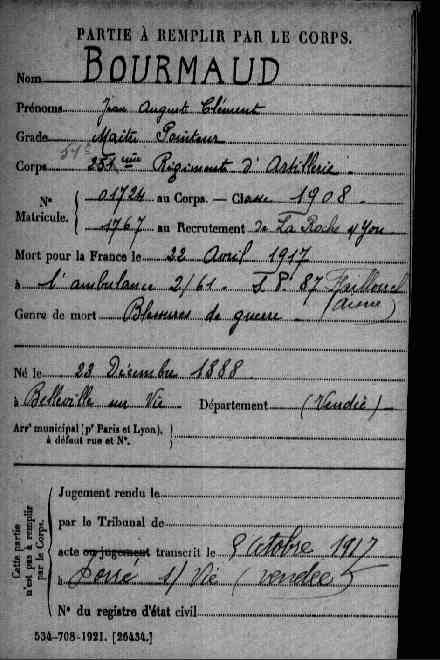 PARTIE À REMPLIR PAR LE CORPS.
Nom BOURMAUD
Prénoms Jean August Clément
Grade Maitre Pointeur
Corps 251 ème Régiment d'Artillerie
N° Matricule. 01724 au Corps. — Classe 1908.
1767 au Recrutement de La Roche s/ Yon
Mort pour la France le 22 Avril 1917
à l'ambulance 2/61. S.P. 87
(aisne)
Genre de mort Blessures de guerre
Né le 23 Décembre 1888
à Belleville sur Vie Département (Vendée)
Arr' municipal (p' Paris et Lyon),
à défaut rue et N°.
Cette partie n'est pas à remplir par le Corps.
Jugement rendu le
par le Tribunal de
acte ou jugement transcrit le 9 Octobre 1917
à s/ Vie (vendée)
N° du registre d'état civil
534-708-1921. [26434.]